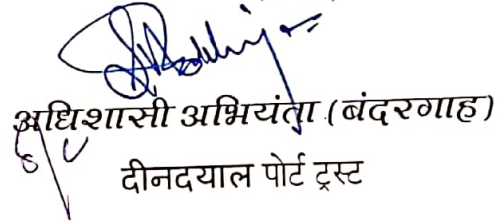 अधिशासी अभियंता (बंदरगाह)
दीनदयाल पोर्ट ट्रस्ट